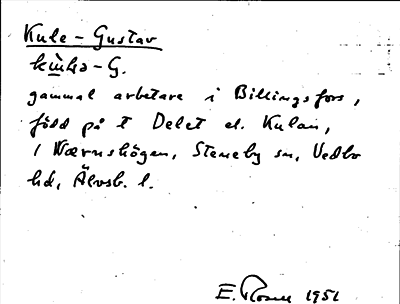 Kule-Gustav
gammal arbetare i Billingsfors,
född på t Delet el. Kulan,
i Wærnshögen, Steneby sn, Vedbo
hd, Älvsb. l.
E. Rosen 1951